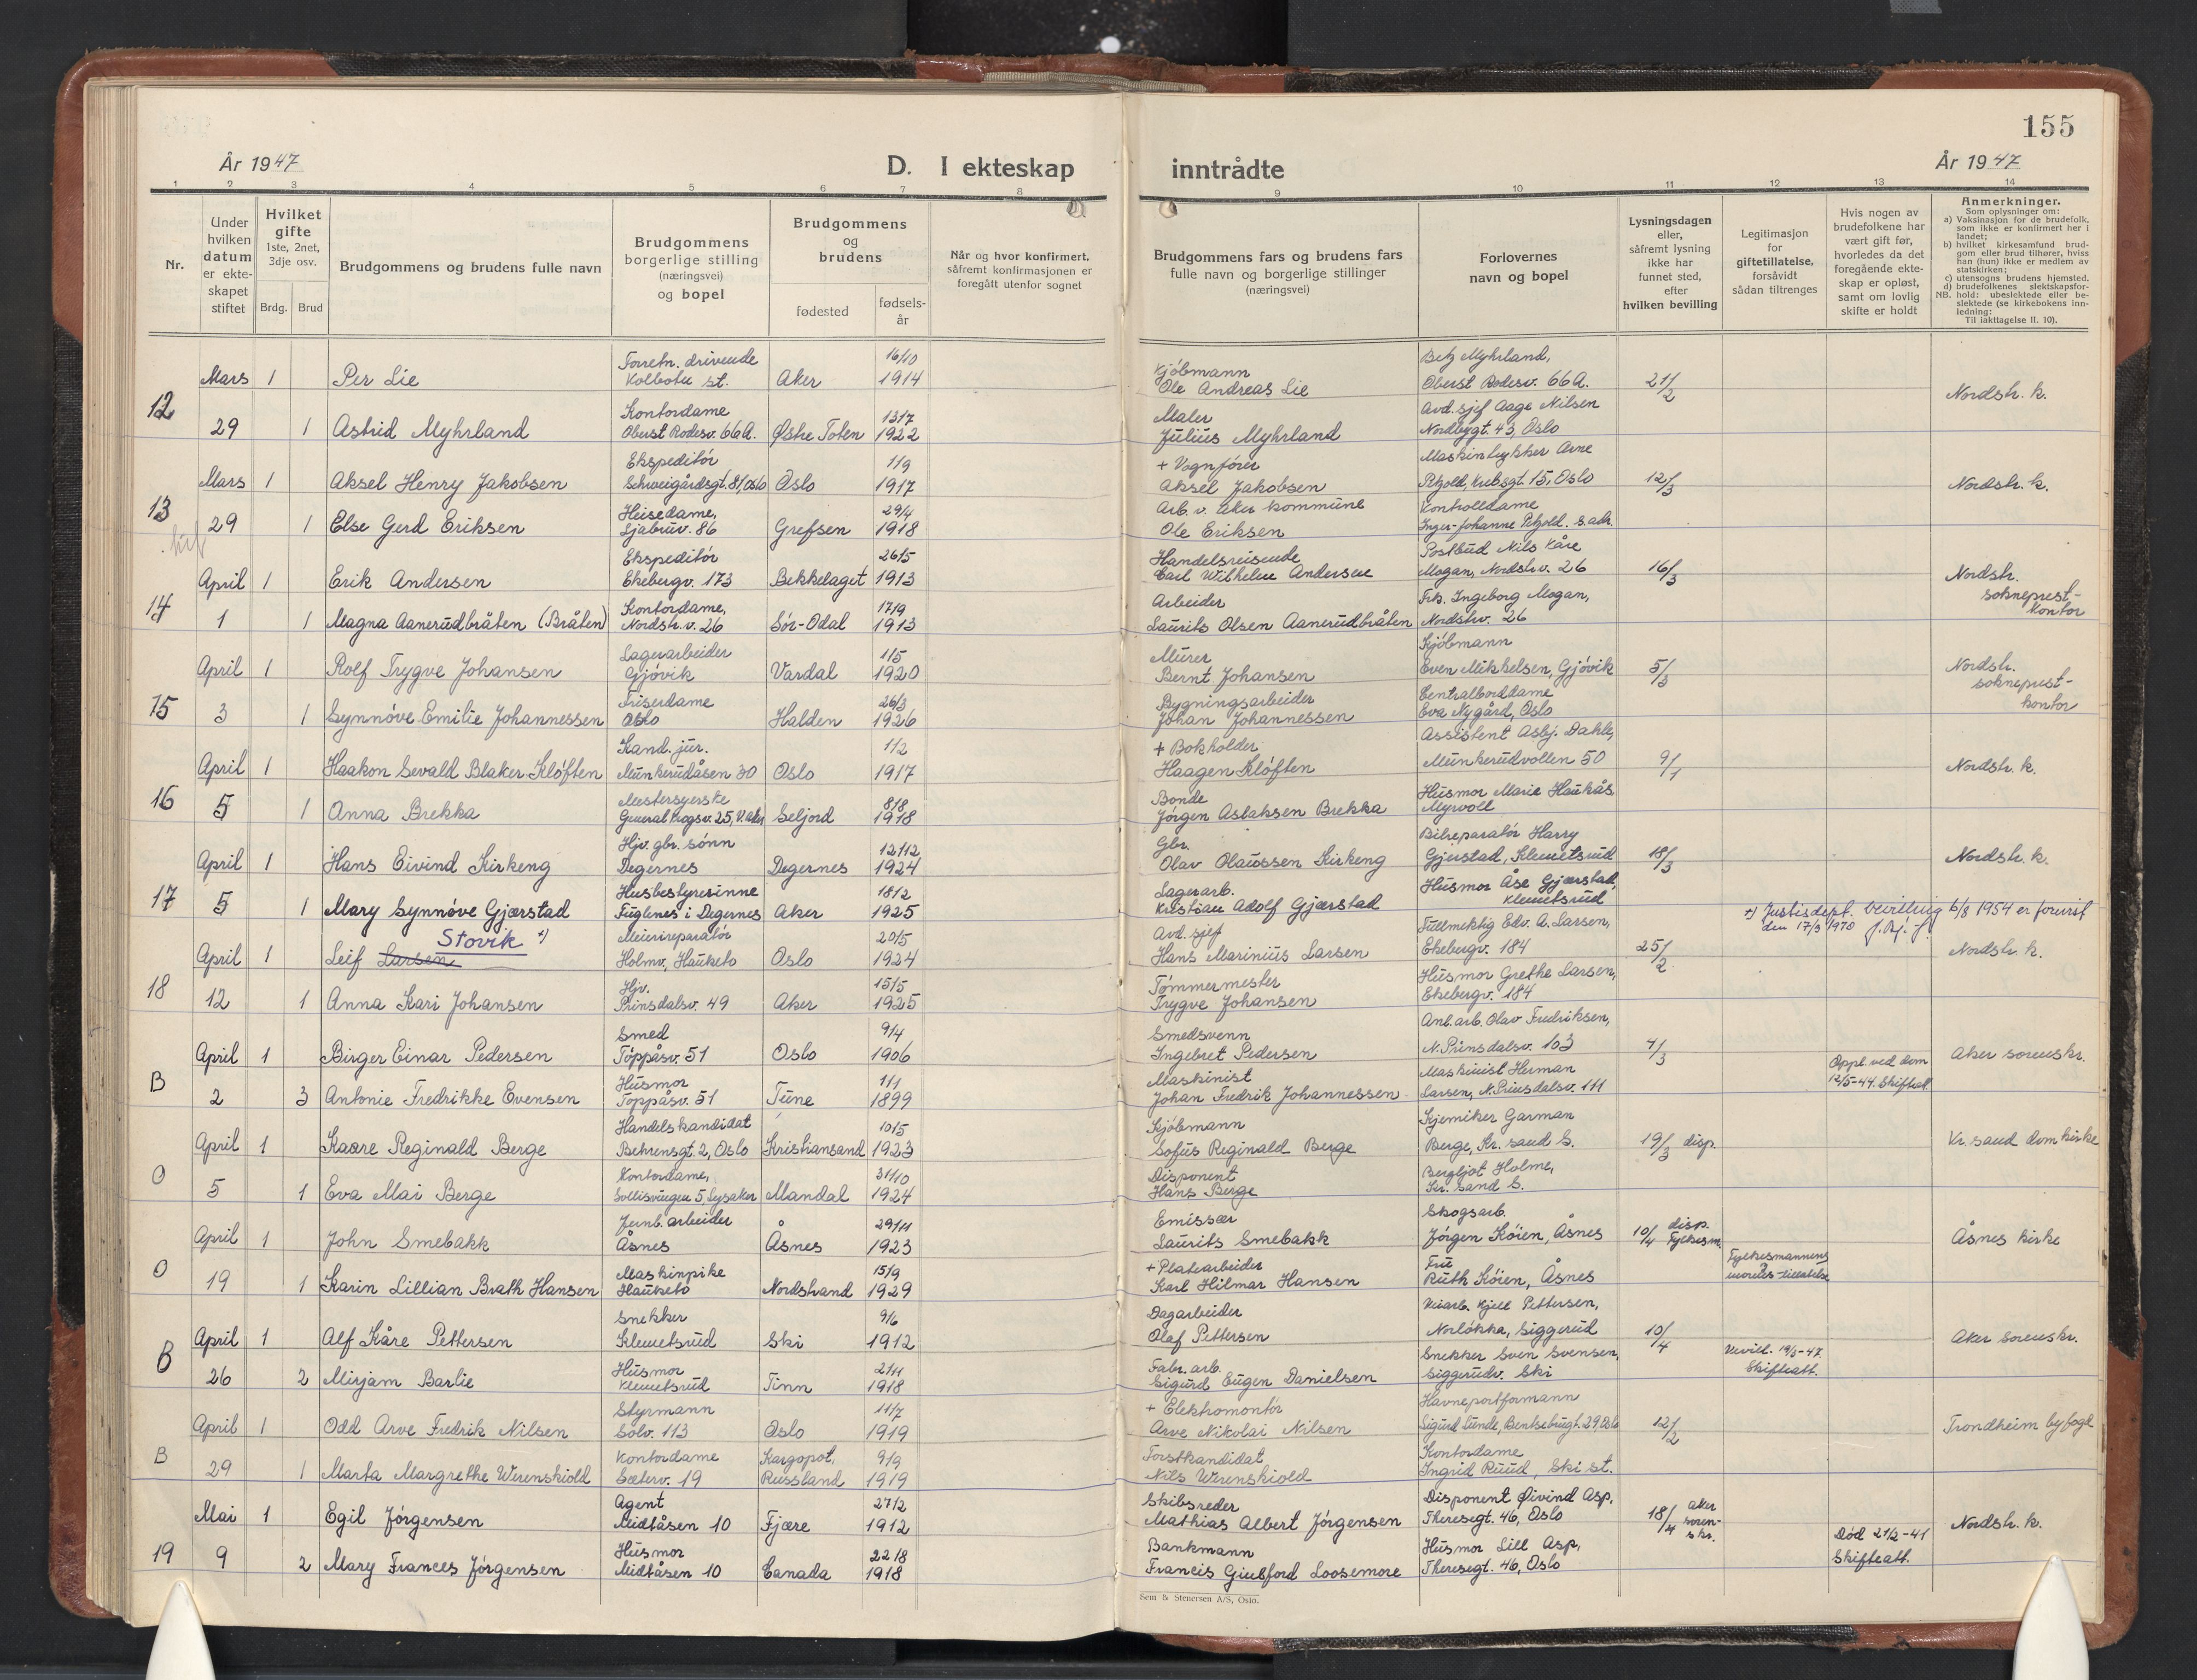 155
År 1947
D. I ekteskap inntrådte
År 1947
1 2 3 4 5 6 7 8 9 10 11 12 13 14
Nr.
Under hvilken datum er ekte-skapet stiftet
Hvilket gifte 1ste, 2net, 3dje osv.
Brdg. Brud
Brudgommens og brudens fulle navn
Brudgommens borgerlige stilling (næringsvei) og bopel
Brudgommens og brudens
fødested
fødsels-år
Når og hvor konfirmert, såfremt konfirmasjonen er foregått utenfor sognet
Brudgommens fars og brudens fars fulle navn og borgerlige stillinger (næringsvei)
Forlovernes navn og bopel
Lysningsdagen eller, såfremt lysning ikke har funnet sted, efter hvilken bevilling
Legitimasjon for giftetillatelse, forsåvidt sådan tiltrenges
Hvis nogen av brudefolkene har vært gift før, hvorledes da det foregående ekte-skap er opløst, samt om lovlig skifte er holdt
Anmerkninger.
Som oplysninger om:
a) Vaksinasjon for de brudefolk, som ikke er konfirmert her i landet;
b) hvilket kirkesamfund brud-gom eller brud tilhører, hviss han (hun) ikke er medlem av statskirken;
c) utensogns brudens hjemsted.
d) brudefolkenes slektskapsfor-
NB. hold: ubeslektede eller be-slektede (se kirkebokens inn-ledning:
Til iakttagelse II. 10).
12 Mars 1 Per Lie Forretn. drivende Kolbotn st. Aker 16/10 1914 Kjöbmann Ole Andreas Lie Myhrland, Oberst Rodesv. 66A. 21/2 Nordstr. k.
29 1 Astrid Myhrland Kontordame Oberst Rodesv. 66A. Østre Toten 13/7 1922 Maler Julius Myhrland Avd. sjef Aage Nilsen Nordbygt. 43, Oslo
13 Mars 1 Aksel Henry Jakobsen Ekspeditör Schweigårdsgt. 81, Oslo Oslo 1/9 1917 + Vognförer Aksel Jakobsen Maskintrykker Arne 15, Oslo 12/3 Nordstr. k.
29 1 Else Gerd Eriksen Heisedame, Ljabruv. 86 Grefsen 29/4 1918 Arb. v. Aker kommune Ole Eriksen Kontrolldame Inger-Johanne s. adr.
14 April 1 Erik Andersen Ekspeditör Ekebergv. 173 Bekkelaget 26/5 1913 Handelsreisende Carl Wilhelm Andersen Postbud Nils Kåre Mogan, Nordstr.v. 26 16/3 Nordstr. sokneprest-kontor
1 1 Magna Aanerudbråten (Bråten) Kontordame, Nordstr.v. 26 Sör-Odal 17/9 1913 Arbeider Laurits Olsen Aanerudbråten Frk. Ingeborg Mogan, Nordstrv. 26
15 April 1 Rolf Trygve Johansen Lagerarbeider Gjövik Vardal 1/5 1920 Murer Bernt Johansen Kjöbmann Even Mikkelsen, Gjövik 5/3 Nordstr. sokneprest-kontor
3 1 Synnöve Emilie Johannessen Friserdame Oslo Halden 26/3 1926 Bygningsarbeider Johan Johannessen Centralborddame Eva Nygård, Oslo
16 April 1 Haakon Sevald Blaker Klöften Kand. jur. Munkerudåsen 30 Oslo 1/2 1917 + Bokholder Haagen Klöften Assistent Asbj. Dahle, Munkerudvollen 50 9/1 Nordstr. k.
5 1 Anna Brekka Mestersyerske General 25, V. Aker Seljord 8/8 1918 Bonde Jörgen Aslaksen Brekka Husmor Marie Haukås Myrvoll
17 April 1 Hans Eivind Kirkeng Hjv. gbr. sönn Degernes Degernes 12/12 1924 Gbr. Olav Olaussen Kirkeng Bilreparatör Harry Gjerstad, Klemetsrud 18/3 Nordstr. k.
5 1 Mary Synnöve Gjærstad Husbestyrerinne Fuglenes i Degernes Aker 18/2 1925 Lagerarb. Kristian Adolf Gjærstad Husmor Åse Gjærstad, Klemetsrud
+) Justisdept. bevilling 6/8 1954 er forevist den 17/3 1970
18 April 1 Leif Larsen Stovik +) Meierireparatör Holmv., Hauketo Oslo 20/5 1924 Avd. sjef Hans Marinius Larsen Fullmektig Edv. A. Larsen, Ekebergv. 184 25/2 Nordstr. k.
12 1 Anna Kari Johansen Hjv. Prinsdalsv. 49 Aker 15/5 1925 Tömmermester Trygve Johansen Husmor Grethe Larsen, Ekebergv. 184
B April 1 Birger Einar Pedersen Smed Töppåsv. 51 Oslo 9/4 1906 Smedsvenn Ingebret Pedersen Anl. arb. Olav Fredriksen, N. Prinsdalsv. 103 Aker sorenskr.
2 3 Antonie Fredrikke Evensen Husmor Toppåsv. 51 Tune 1/1 1899 Maskinist Johan Fredrik Johannessen Maskinist Herman Larsen, N. Prinsdalsv. 111 Oppl. ved dom 12/5-44. Skifteatt.
O April 1 Kaare Reginald Berge Handelskandidat Behrensgt. 2, Oslo Kristiansand 10/5 1923 Kjöbmann Sofus Reginald Berge Kjemiker Garman Berge, Kr. sand S. 19/3 disp. Kr. sand domkirke
5 1 Eva Mai Berge Kontordame, Sollisvingen 5 Lysaker Mandal 31/10 1924 Disponent Hans Berge Bergljot Holme, Kr. sand S.
O April 1 John Smebakk Jernb. arbeider Åsnes Åsnes 29/11 1923 Emissær Laurits Smebakk Skogsarb. Jörgen Köien, Åsnes 10/4 disp. Fylkesm. Åsnes kirke
19 1 Karin Lillian Brath Hansen Maskinpike Hauketo Nordstrand 15/9 1929 + Platearbeider Karl Hilmar Hansen Fru Ruth Köien, Åsnes Fylkesmannens
B April 1 Alf Kåre Pettersen Snekker Klemetsrud Ski 9/6 1912 Dagarbeider Olaf Pettersen Kjell Pettersen, Norlökka, Siggerud 10/4 Aker sorenskr.
26 2 Mirjam Barlie Husmor Klemetsrud Tinn 21/1 1918 Fabr. arb. Sigurd Eugen Danielsen Snekker Sven Svensen, Siggerudv. Ski 19/3-47 Skifteatt.
B April 1 Odd Arve Fredrik Nilsen Styrmann Solv. 113 Oslo 11/7 1919 + Elektromontör Arve Nikolai Nilsen Havneportformann Sigurd Lunde, Bentsebrugt. 29, Oslo 12/2 Trondheim byfogd
29 1 Marta Margrethe Werenskiold Kontordame Sæterv. 19 Kargopol, Russland 9/9 1919 Forstkandidat Nils Werenskiold Kontordame Ingrid Ruud, Ski st.
19 Mai 1 Egil Jörgensen Agent Midtåsen 10 Fjære 27/2 1912 Skibsreder Mathias Albert Jörgensen Disponent Øivind Asp, Theresegt. 46, Oslo 18/4 Aker soren-skr. Nordstr. k.
9 2 Mary Frances Jörgensen Husmor Midtåsen 10 Canada 22/8 1918 Bankmann Francis Loosemore Husmor Lill Asp, Theresegt. 46, Oslo Död 21/2-41 Skifteatt.
Sem & Stenersen A/S, Oslo.